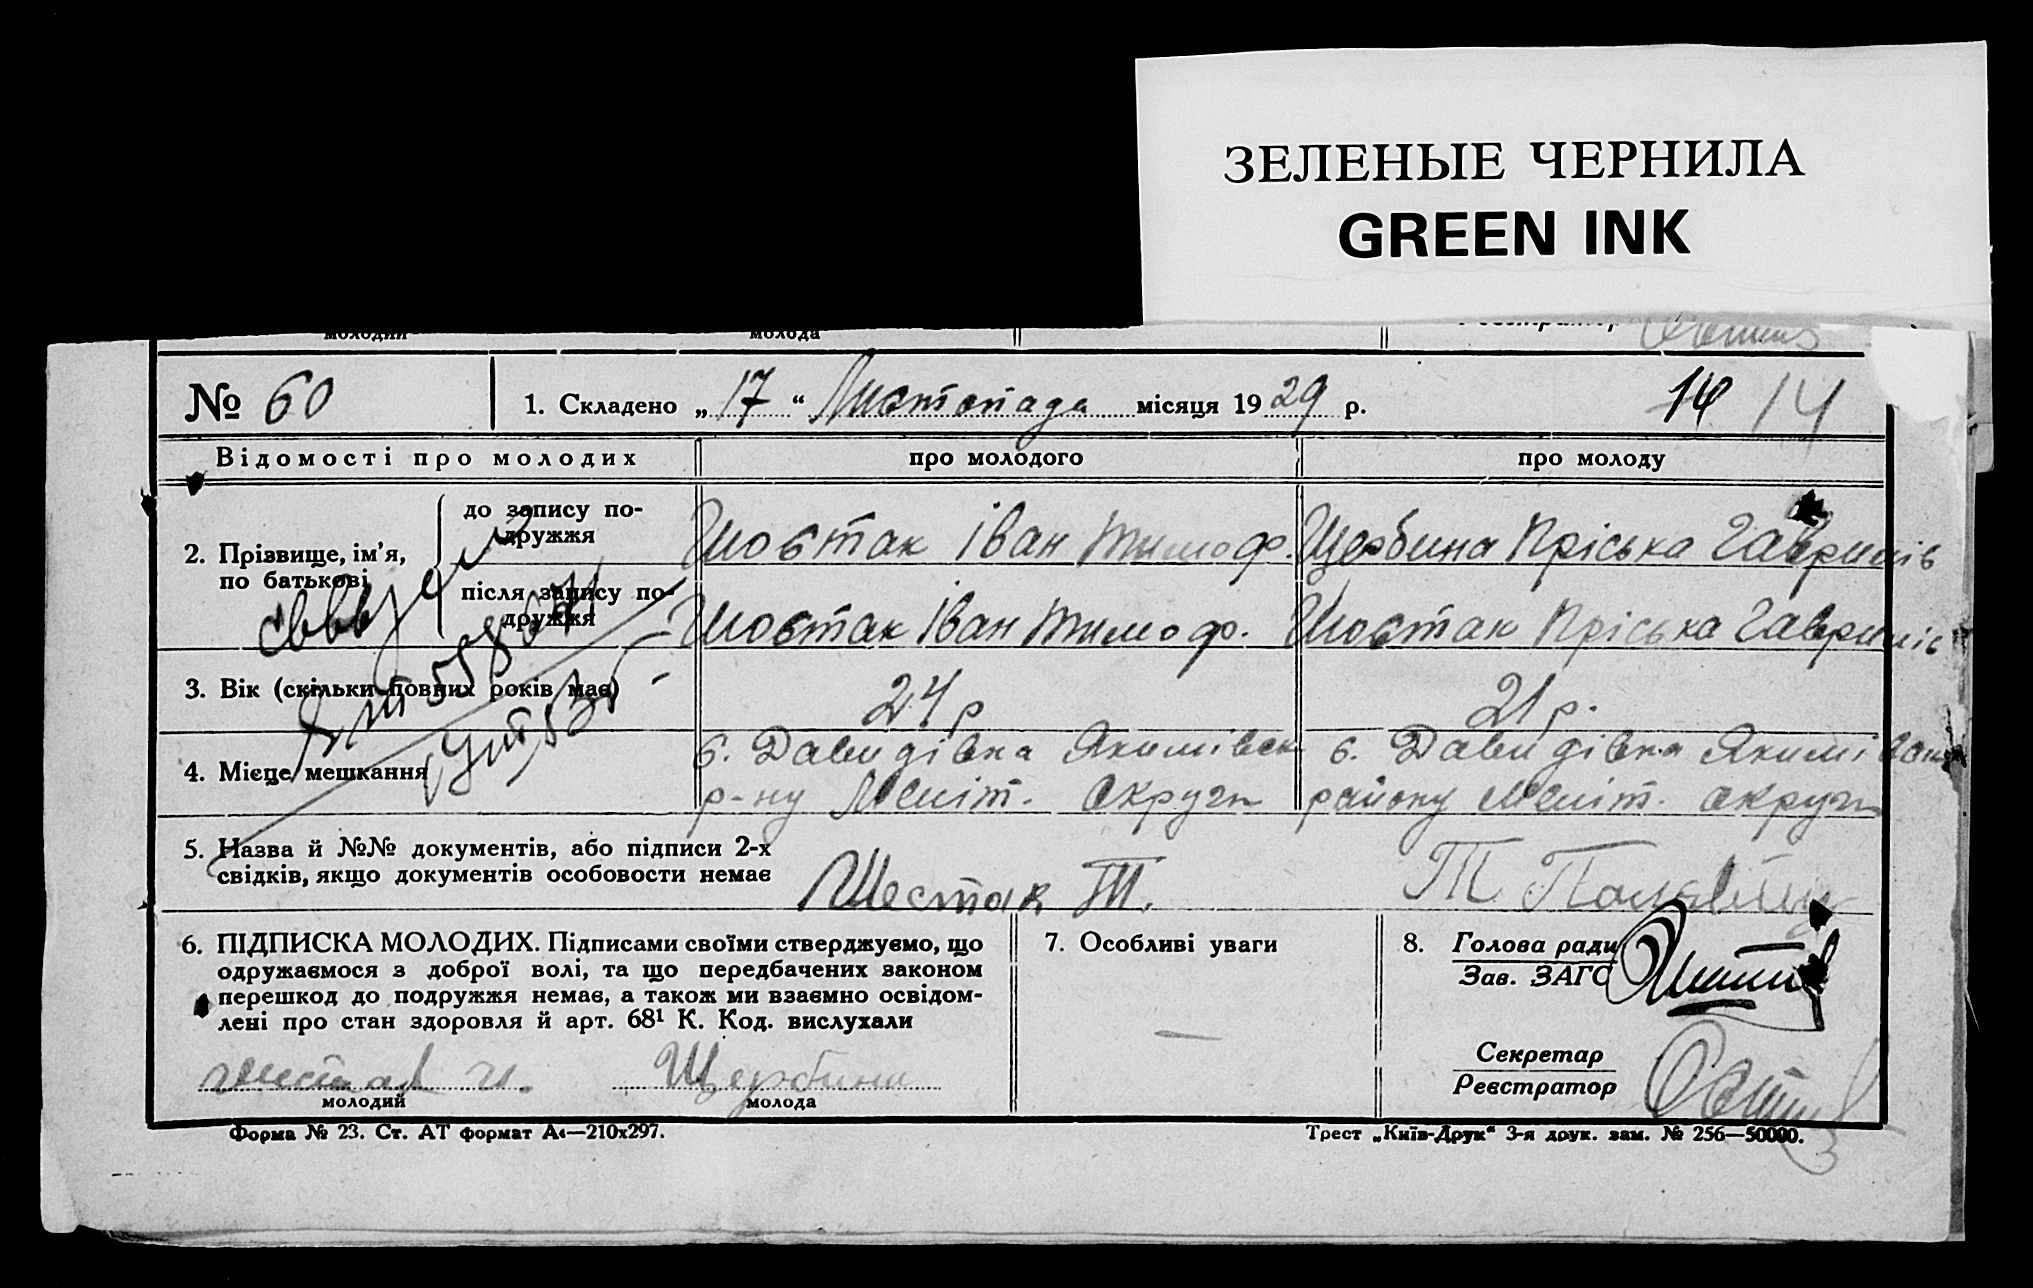 ЗЕЛЕНЫЕ ЧЕРНИЛА
GREEN INK
молодий молода
№ 60 1. Складено „17“ Листопада місяця 1929 р. 14 14
Відомості про молодих про молодого про молоду
2. Прізвище, ім’я, по батькові
до запису подружжя Шостак Іван Тимоф. Щербина Пріська Гаврилів
після запису подружжя Шостак Іван Тимоф. Шостак Пріська Гаврилів
3. Вік (скільки повних років має) 24 р 21 р.
4. Місце мешкання с. Давидівка Якимівськ с. Давидівка Якимівськ
р-ну Меліт. Округи району Меліт. округи
5. Назва й №№ документів, або підписи 2-х
свідків, якщо документів особовости немає Шестак Т. Т
6. ПІДПИСКА МОЛОДИХ. Підписами своїми стверджуємо, що
одружаємося з доброї волі, та що передбачених законом
перешкод до подружжя немає, а також ми взаємно освідом-
лені про стан здоровля й арт. 68¹ К. Код. вислухали
Шестак И. Щербина
молодий молода
7. Особливі уваги
—
8. Голова ради
Зав. ЗАГС
Секретар
Реєстратор
Форма № 23. Ст. АТ формат А4—210х297. Трест „Київ-Друк“ 3-я друк. зам. № 256—50000.